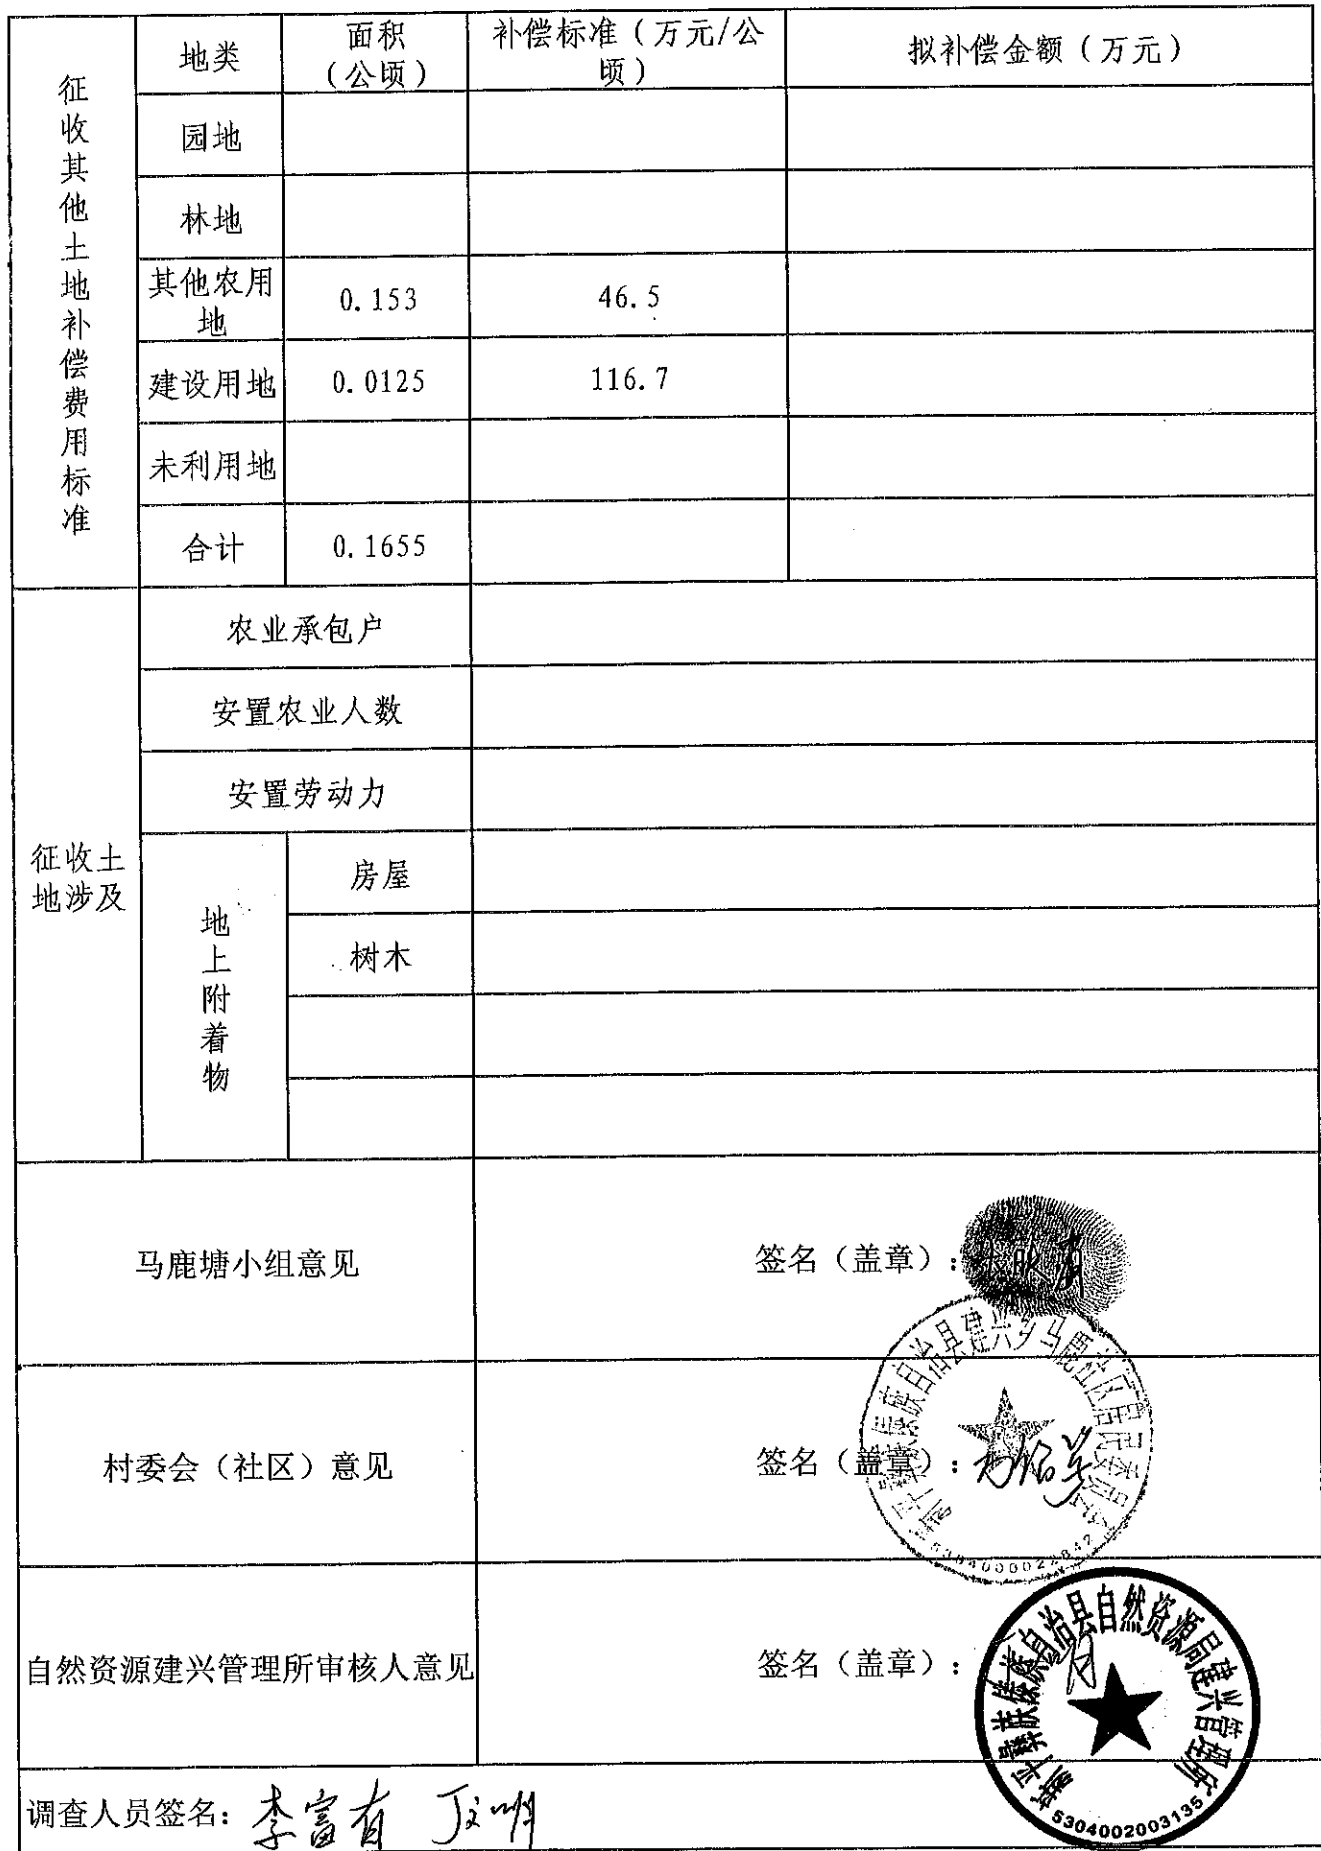 征收其他土地补偿费用标准
地类
面积
（公顷）
补偿标准（万元/公
顷）
拟补偿金额（万元）
园地
林地
其他农用
地
0.153
46.5
建设用地
0.0125
116.7
未利用地
合计
0.1655
征收土
地涉及
农业承包户
安置农业人数
安置劳动力
地上附着物
房屋
树木
马鹿塘小组意见
签名（盖章）：
村委会（社区）意见
签名（盖章）：
新平彝族傣族自治县建兴乡马鹿社区居民委员会
自然资源建兴管理所审核人意见
签名（盖章）：
新平彝族傣族自治县自然资源局建兴管理所
5304002003135
调查人员签名：李富有